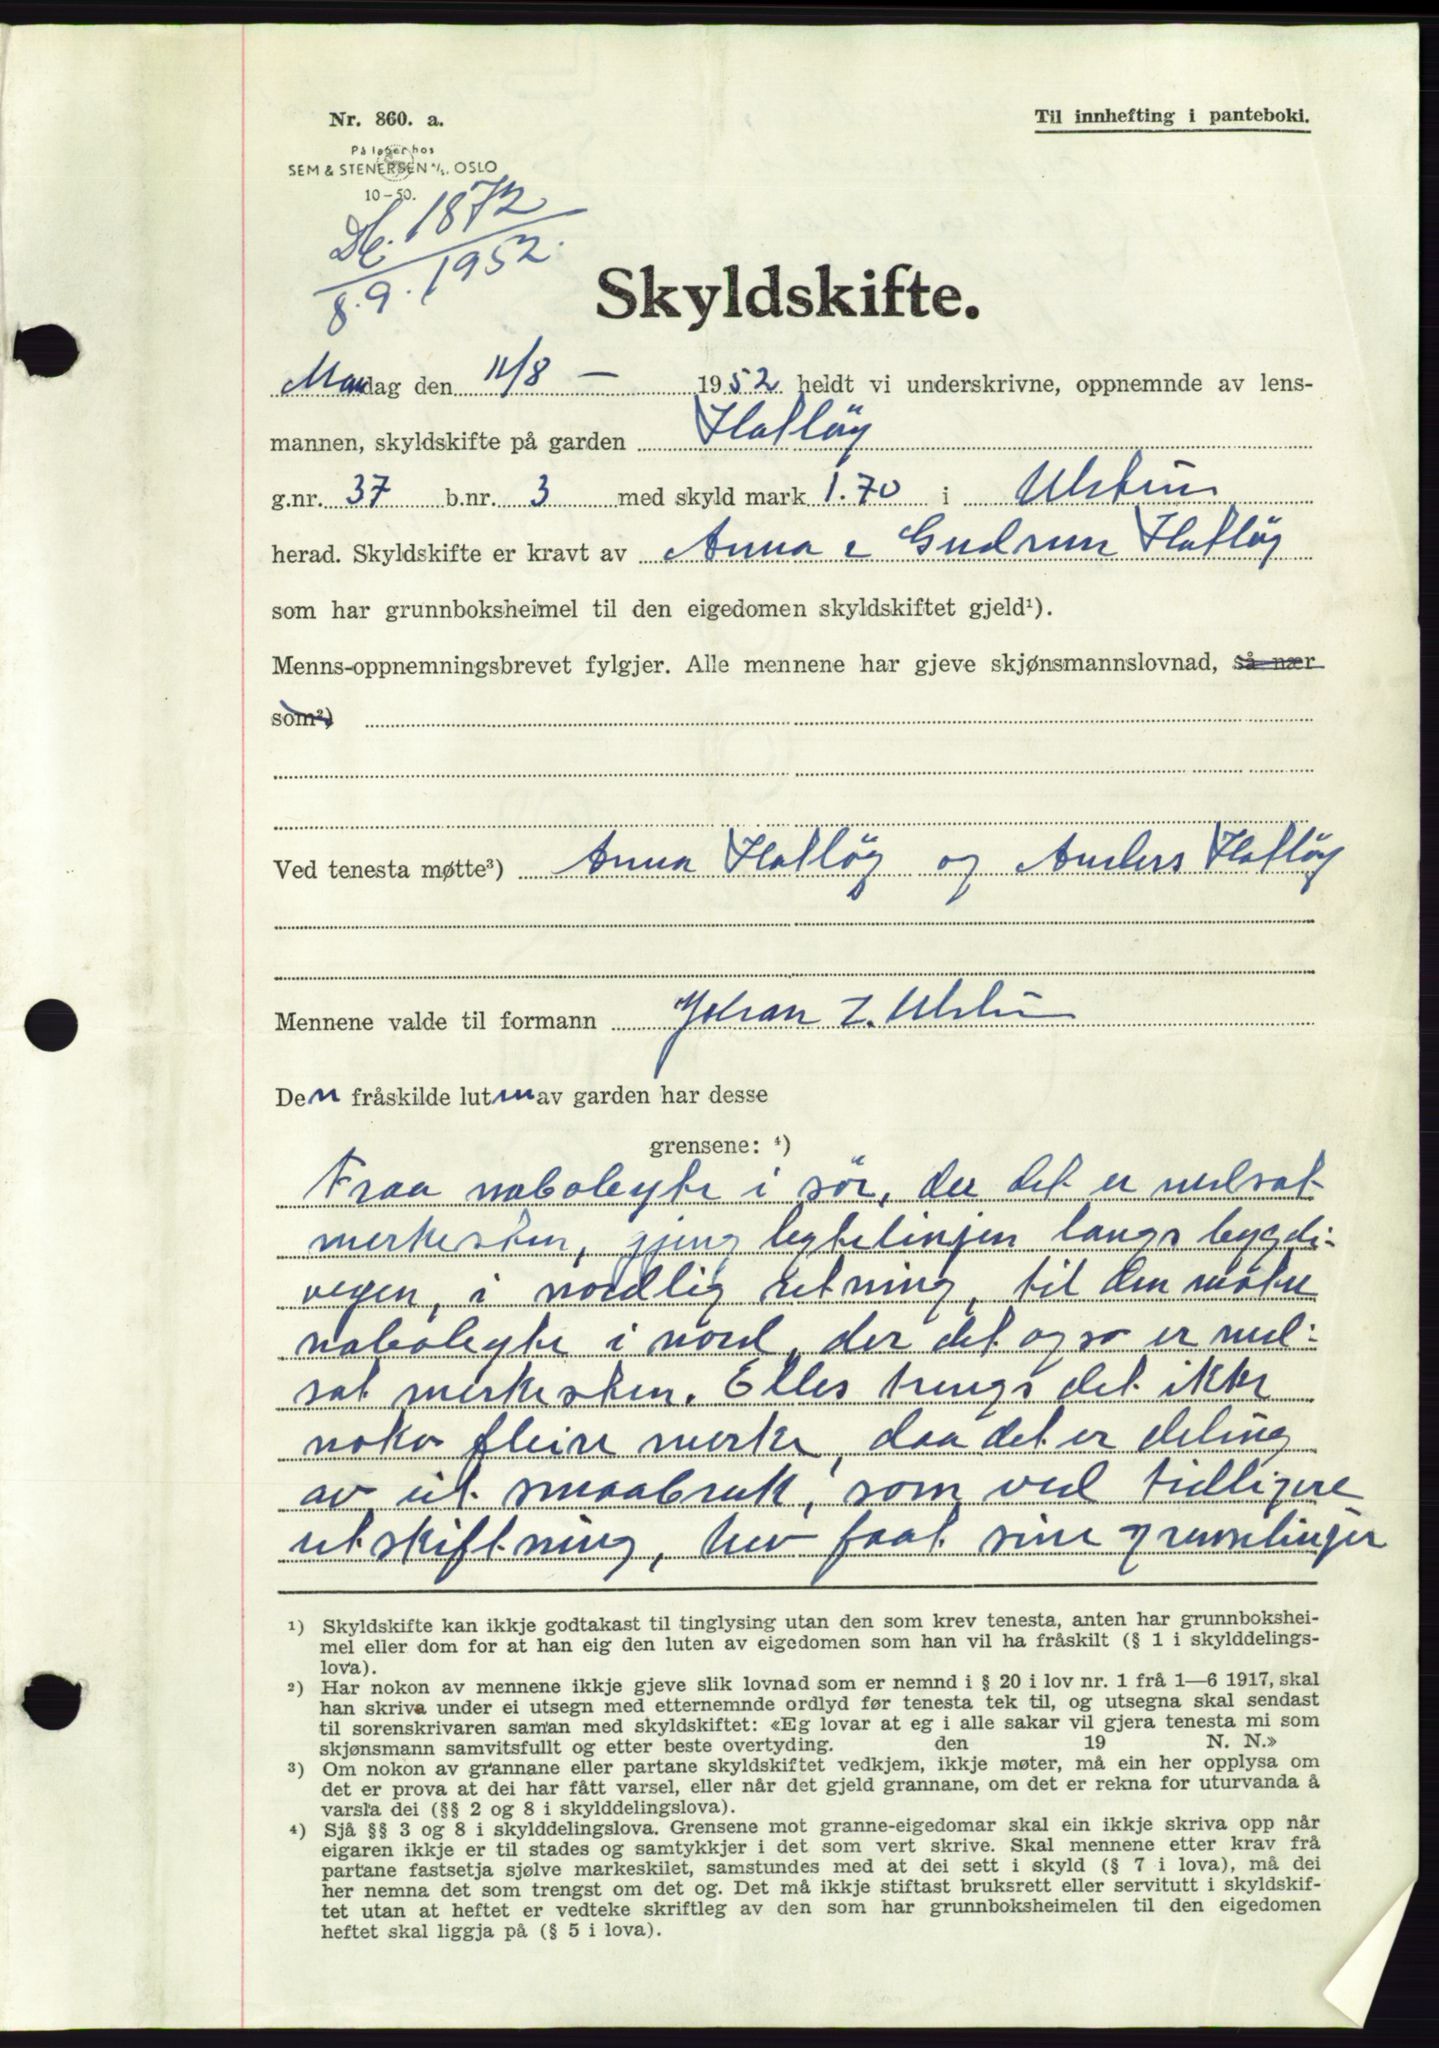 Nr. 860. a.
Til innhefting i panteboki.
På lager hos
SEM & STENERSEN A/S, OSLO
10-50.
Db. 1872
8.9.1952.
Skyldskifte.
Mandag den 11/8 – 1952 heldt vi underskrivne, oppnemnde av lens-
mannen, skyldskifte på garden Hatløy
g.nr. 37 b.nr. 3 med skyld mark 1.70 i Ulstein
herad. Skyldskifte er kravt av Anna e Gudrun Hatløy
som har grunnboksheimel til den eigedomen skyldskiftet gjeld¹).
Menns-oppnemningsbrevet fylgjer. Alle mennene har gjeve skjønsmannslovnad, så nær
som²)
Ved tenesta møtte³) Anna Hatløy og Anders Hatløy
Mennene valde til formann Johan Z. Ulstein
Den fråskilde luten av garden har desse
grensene: ⁴)
Fraa nabobyte i sör, der det er nedsat
merkesten, gjeng bytelinjen langs bygdi-
vegen, i nordlig retning, til den møter
nabobyte i nord, der det ogso er ned-
sat merkesten. Elles trengs det ikke
noko fleire merke, daa det er deling
av eit smaabruk, som ved tidligere
utskiftning, hev faat sine grenselinjer
¹) Skyldskifte kan ikkje godtakast til tinglysing utan den som krev tenesta, anten har grunnboksheimel
mel eller dom for at han eig den luten av eigedomen som han vil ha fråskilt (§ 1 i skylddelings-
lova).
²) Har nokon av mennene ikkje gjeve slik lovnad som er nemnd i § 20 i lov nr. 1 frå 1—6 1917, skal
han skriva under ei utsegn med etternemnde ordlyd før tenesta tek til, og utsegna skal sendast
til sorenskrivaren saman med skyldskiftet: «Eg lovar at eg i alle sakar vil gjera tenesta mi som
skjønsmann samvitsfullt og etter beste overtyding. den 19 N. N.»
³) Om nokon av grannane eller partane skyldskiftet vedkjem, ikkje møter, må ein her opplysa om
det er prova at dei har fått varsel, eller når det gjeld grannane, om det er rekna for uturvanda å
varsla dei (§§ 2 og 8 i skylddelingslova).
⁴) Sjå §§ 3 og 8 i skylddelingslova. Grensene mot granne-eigedomar skal ein ikkje skriva opp når
eigaren ikkje er til stades og samtykkjer i det som vert skrive. Skal mennene etter krav frå
partane fastsetja sjølve markeskilet, samstundes med at dei sett i skyld (§ 7 i lova), må dei
her nemna det som trengst om det og. Det må ikkje stiftast bruksrett eller servitutt i skyldskif-
tet utan at heftet er vedteke skriftleg av den som har grunnboksheimelen til den eigedomen
heftet skal liggja på (§ 5 i lova).